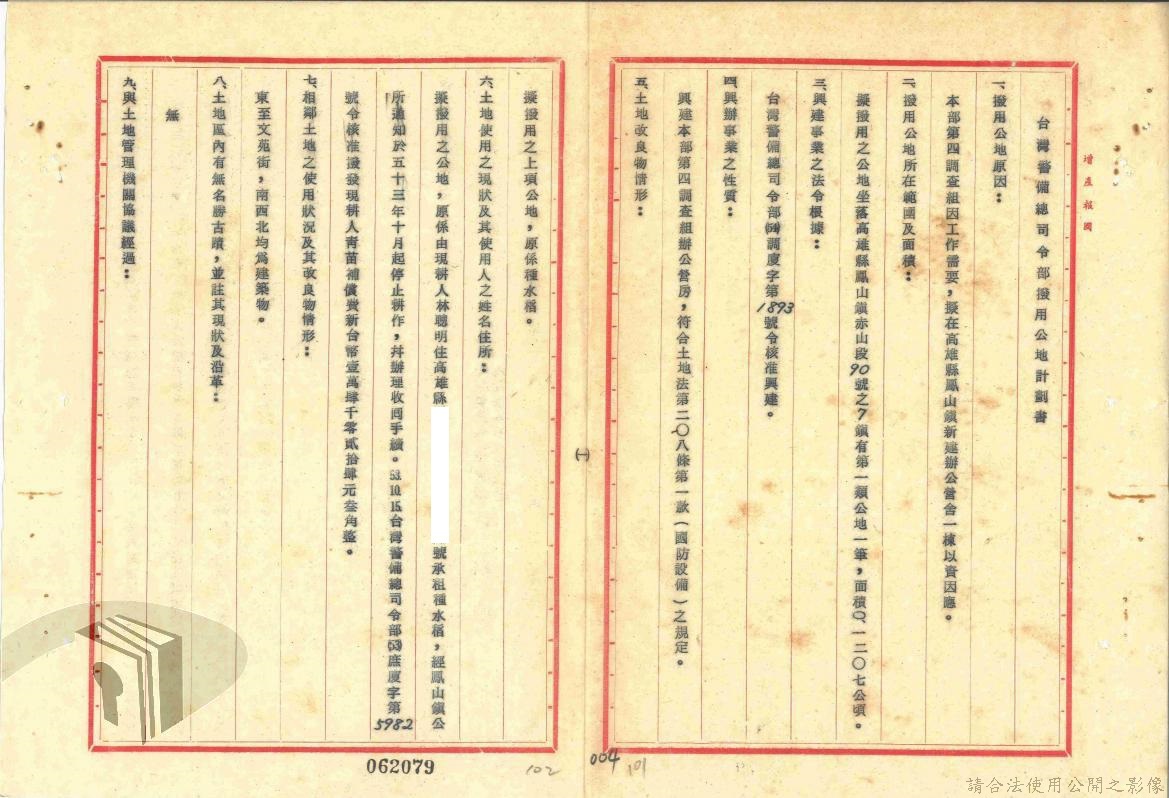 增產報國
台灣警備總司令部撥用公地計劃書
一、撥用公地原因：
本部第四調查組因工作需要，擬在高雄縣鳳山鎮新建辦公營舍一棟以資因應。
二、撥用公地所在範圍及面積：
擬撥用之公地坐落高雄縣鳳山鎮赤山段90號之7鎮有第一類公地一筆，面積〇、一二〇七公頃。
三、興建事業之法令根據：
台灣警備總司令部調度字第1893號令核准興建。
四、興辦事業之性質：
興建本部第四調查組辦公營房，符合土地法第二〇八條第一款（國防設備）之規定。
五、土地改良物情形：
㈠
擬撥用之上項公地，原係種水稻。
六、土地使用之現狀及其使用人之姓名住所：
擬撥用之公地，原係由現耕人林聰明住高雄縣
號承租種水稻，經鳳山鎮公
所通知於五十三年十月起停止耕作，幷辦理收回手續。53.10.15.台灣警備總司令部(53)庶度字第5982
號令核准撥發現耕人青苗補償費新台幣壹萬肆千零貳拾肆元叁角整。
七、相鄰土地之使用狀況及其改良物情形：
東至文苑街，南西北均為建築物。
八、土地區內有無名勝古蹟，並註其現狀及沿革：
無
九、與土地管理機關協議經過：
062079
102
004
101
請合法使用公開之影像